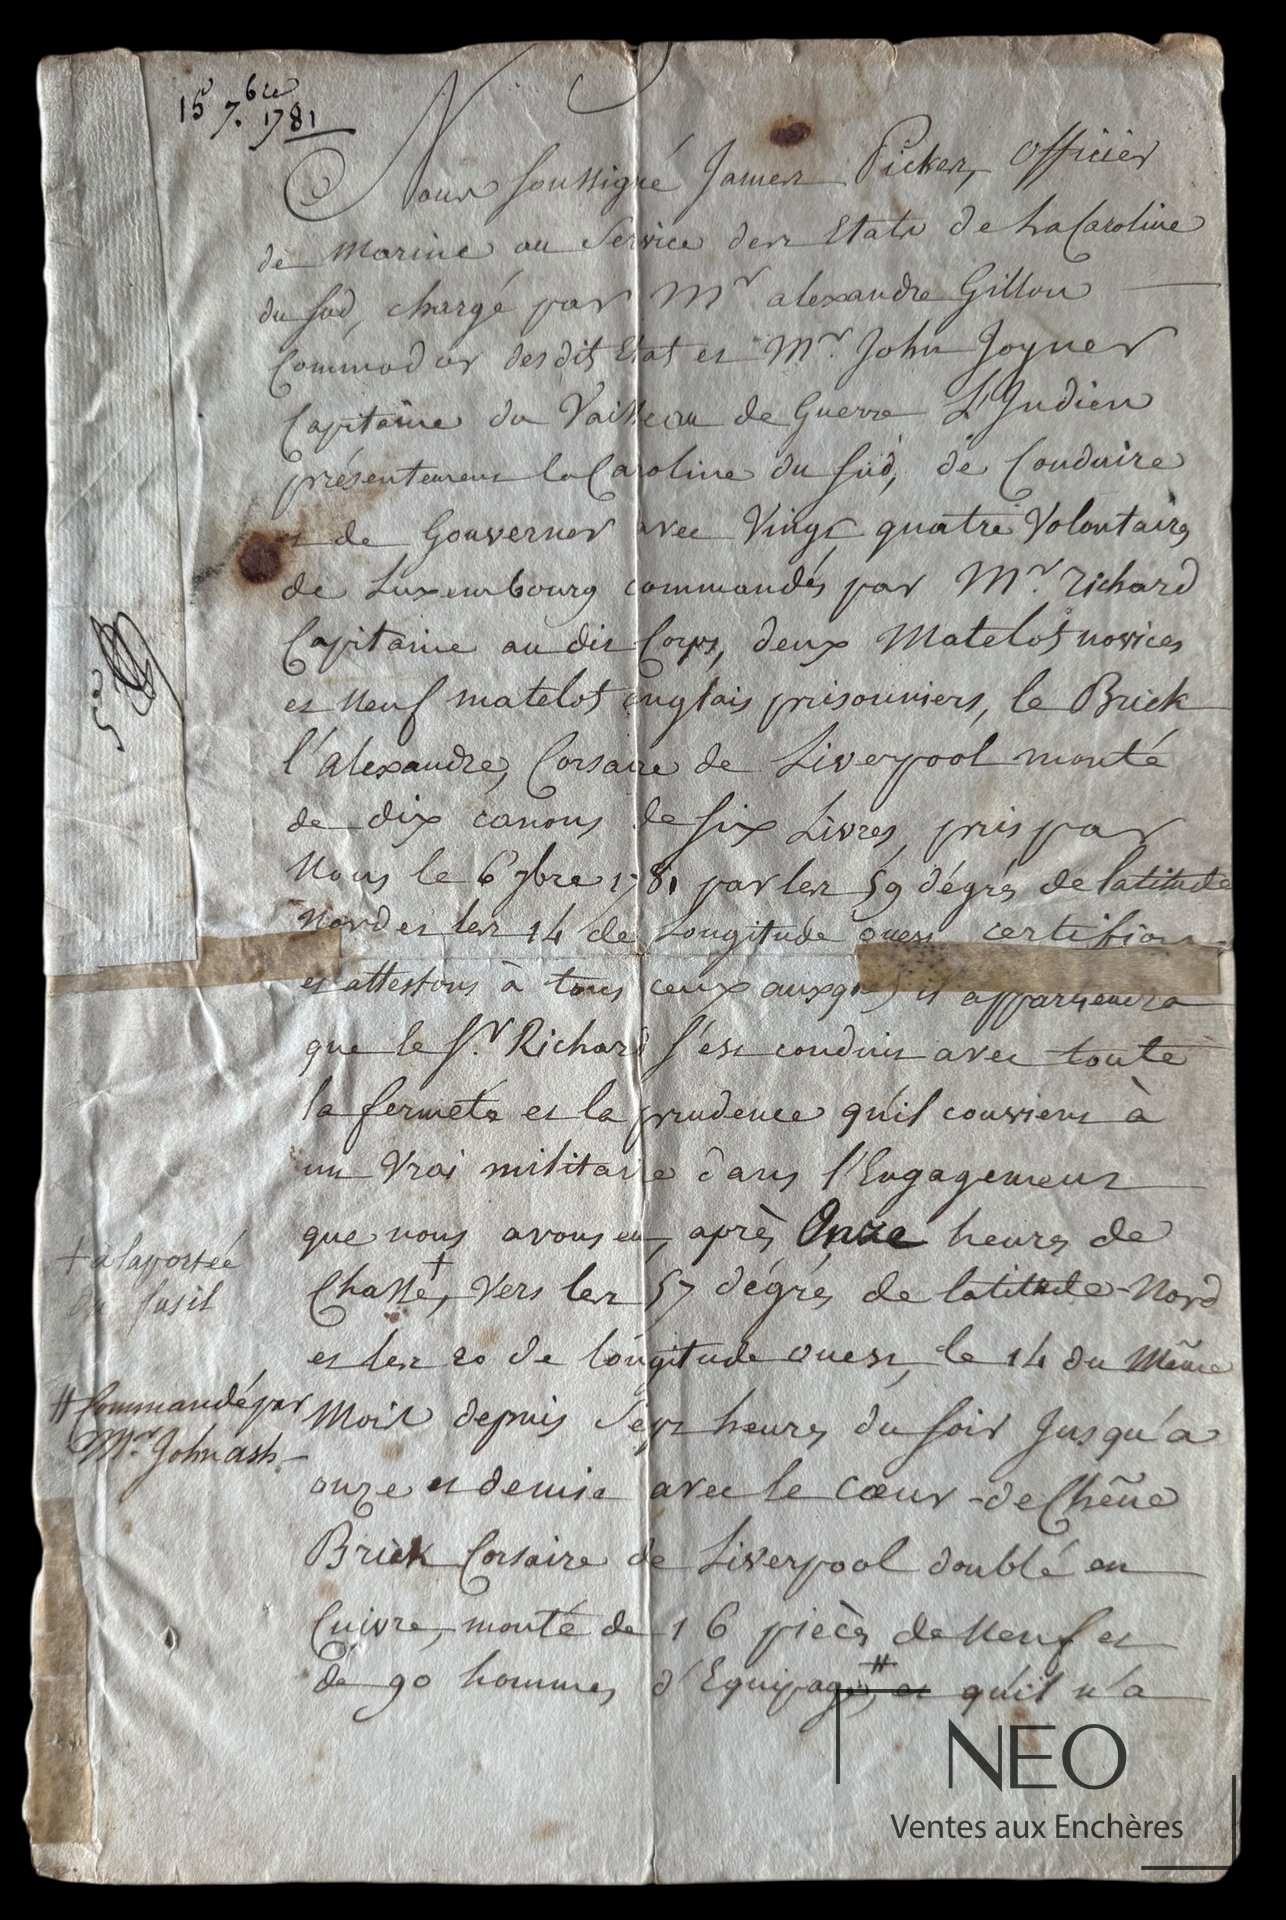 15 7.bre 1781
Nous soussigné James Picker, officier
de Marine au Service des Etats de La Caroline
du Sud, chargé par Mr alexandre Gillon
Commodor desdits Etat et Mr. John Joyner
Capitaine du Vaisseau de Guerre L'Indien
présentement la Caroline du Sud, de Conduire
et de Gouverner avec Vingt quatre Volontaires
de Luxembourg commandés par Mr. Richard
Capitaine au dit Corps, deux Matelots novices
et Neuf matelots englais prisonniers, le Brick
l'Alexandre, Corsaire de Liverpool monté
de dix canons de six Livres, pris par
Nous le 6 7bre 1781 par les 59 dégrés de latitude
Nord et les 14 de Longitude ouest certifions
et attestons à tous ceux auxquels il appartiendra
que le Sr. Richard s'est conduit avec toute
la fermeté et la prudence qu'il convient à
un Vrai militaire dans l'Engagement
que nous avons eu, après Onze heures de
Chasse, + Vers les 57 dégrés de latitude Nord
+ à la portée
du fusil
et les 20 de longitude ouest, le 14 du Même
Mois depuis Sept heures du soir Jusqu'a
# Commandé par
Mr. John ash
onze et demie avec le Cœur-de Chêne
Brick Corsaire de Liverpool doublé en
Cuivre, monté de 16 pièces de Neuf et
de 90 hommes d'Equipage, # et qu'il n'a
NEO
Ventes aux Enchères